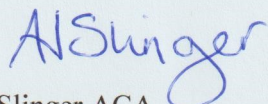 AJSlinger
Slinger ACA